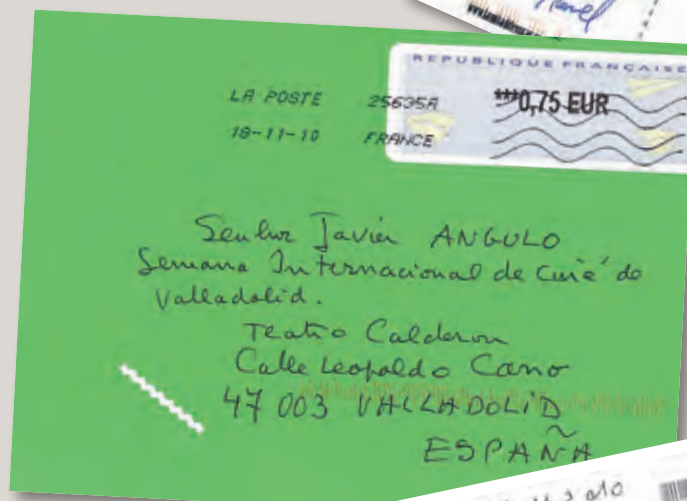 REPUBLIQUE FRANÇAISE
LA POSTE 25635A ***0,75 EUR
18-11-10 FRANCE
Senhor Javier ANGULO
Semana Internacional de Ciné de
Valladolid.
Teatro Calderon
Calle Leopoldo Cano
47 003 VALLADOLID
ESPAÑA